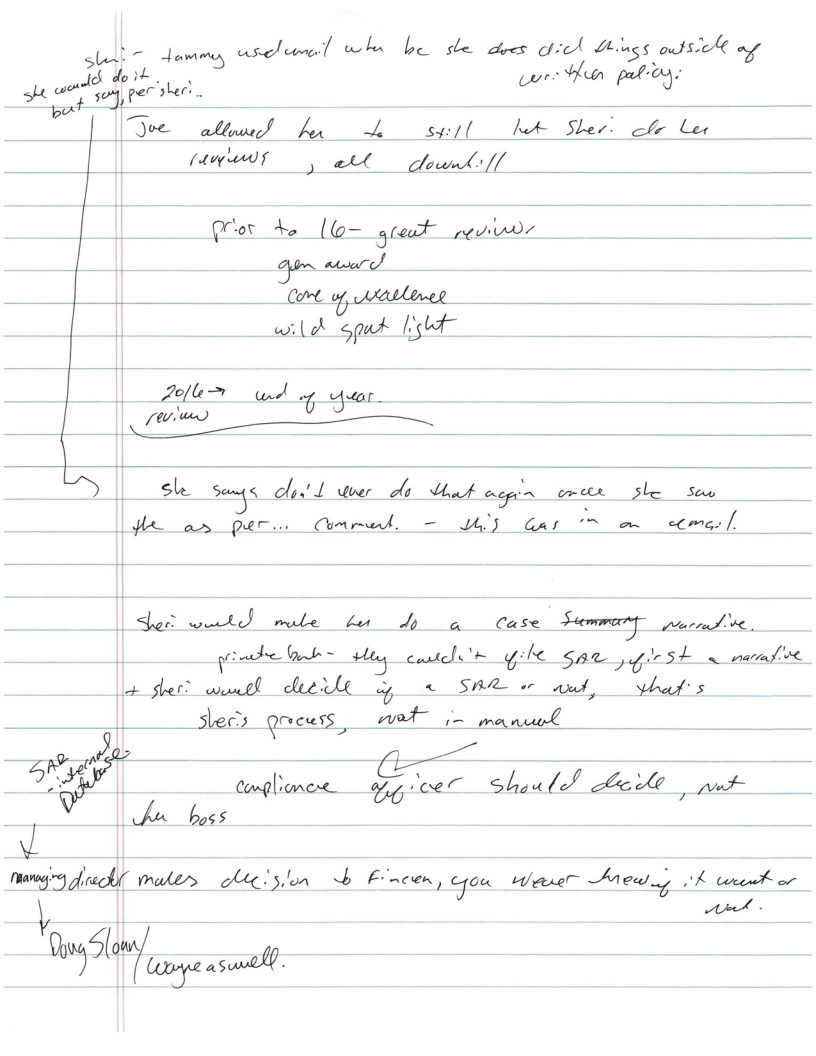 sheri - tammy used email when bc she does did things outside of
written policy.
she would do it
but say, per sheri..
Joe allowed her to still let Sheri do her
reviews, all downhill
prior to 16- great reviews
gem award
core of excellence
wild spot light
2016→ end of year.
review
She says don't ever do that again once she saw
the as per... comment. - this was in an email.
Sheri would make her do a case Summary narrative.
private bank- they couldn't file SAR, first a narrative
+ sheri would decide if a SAR or not, that's
sheri's process, not in manual
SAR
- internal
Database.
compliance officer should decide, not
her boss
managing director makes decision to Fincen, you never knew if it went or
not.
Doug Sloan/
Wayne as well.